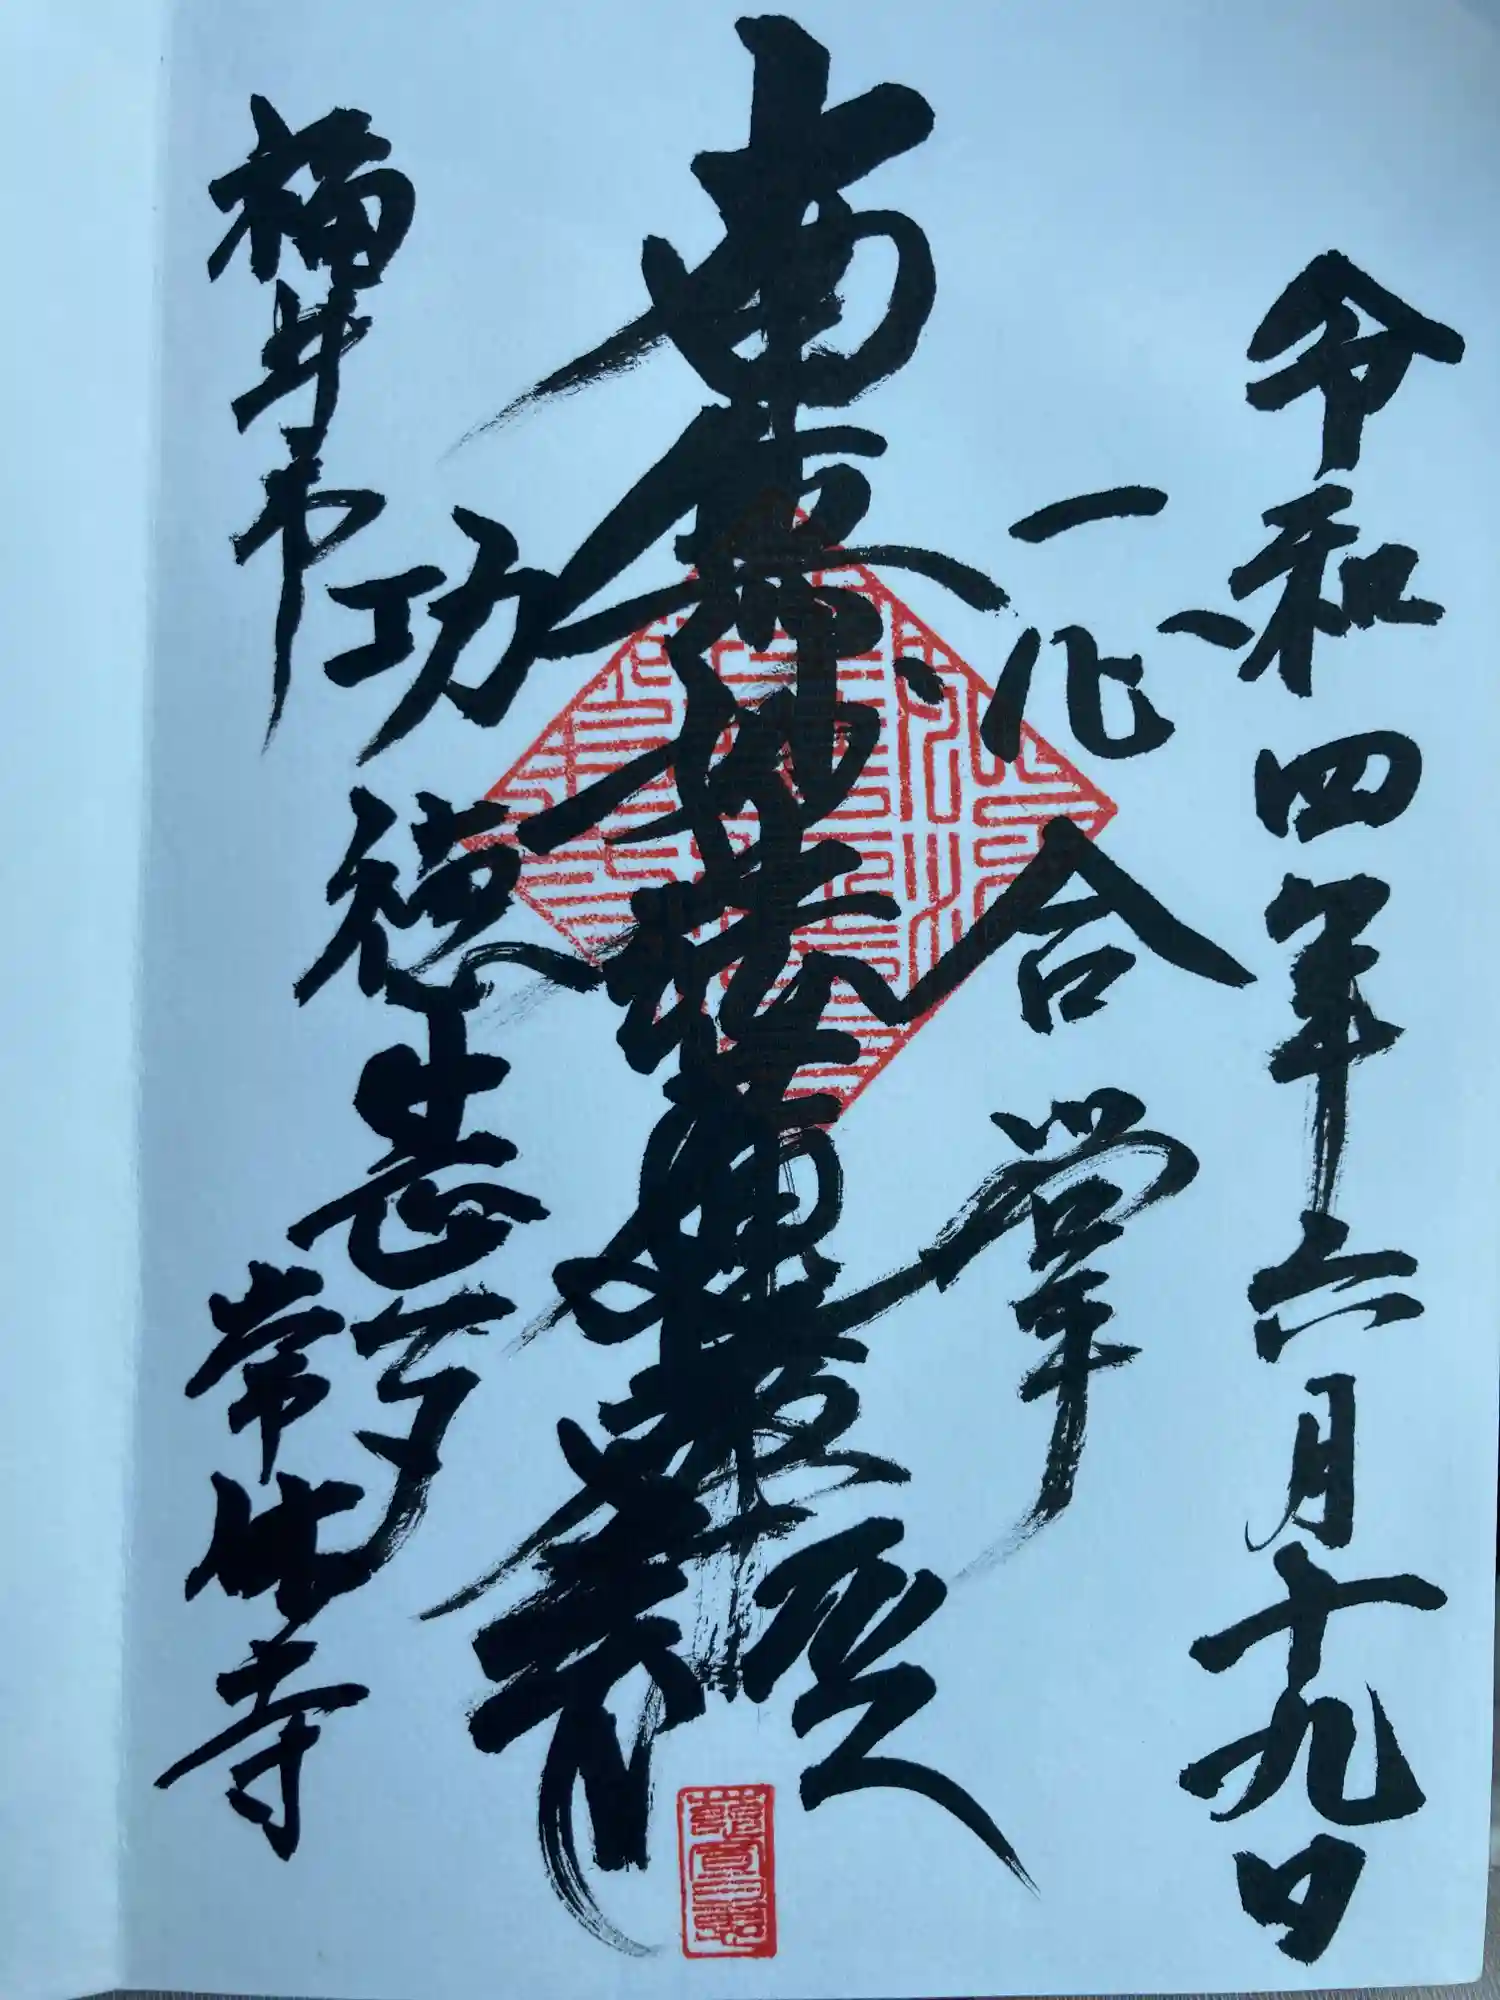 令和四年六月十九日
一心合掌
南無妙法蓮華経
功徳甚多
福井市 常休寺